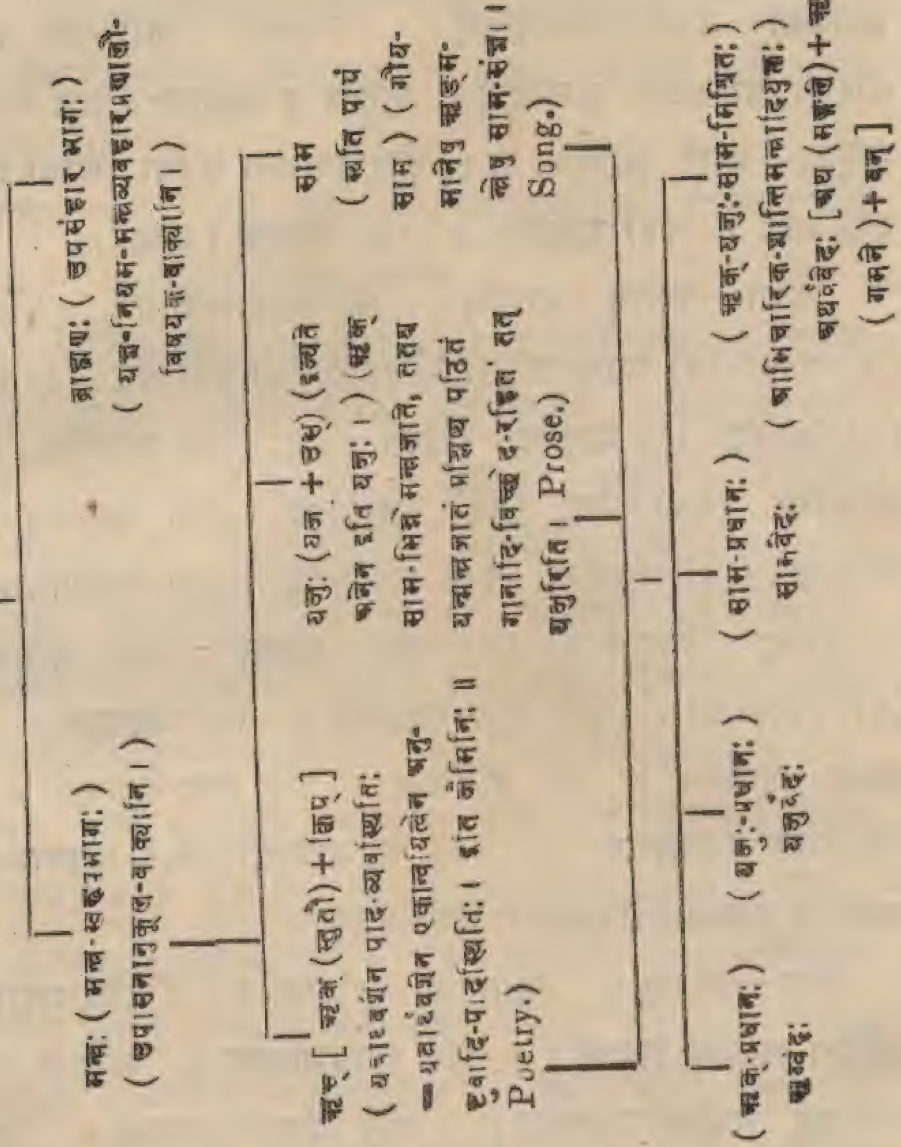 मन्त्रः ( मन्त्र-स्वरूपभागः )
( उपासनानुकूल-वाक्यानि । )
ब्राह्मणः ( उपसंहार भागः )
( यज्ञ-नियम-मन्त्रव्यवहारप्रणाली-
विषयक-वाक्यानि । )
ऋच् [ ऋक् (स्तुतौ) + क्विप् ]
( यत्रादवशेन पाद-व्यवस्थितिः
= यत्रार्थवशेन एकान्वयित्वेन अनु-
ष्टुवादि-पादस्थितिः । इति जैमिनिः ॥
Poetry.)
यजुः (यज् + उस्) (इज्यते
अनेन इति यजुः । ) (ऋक्
साम-भिन्ने मन्त्रजाते, ततश्च
यन्मन्त्रजातं प्रश्लिष्य पठितं
गानादि-विच्छेद-रहितं तत्
यजुरिति । Prose.)
साम
( स्यति पापं
साम ) ( गीय-
मानेषु ऋङ्म-
न्त्रेषु साम-संज्ञा ।
Song.)
( ऋक्-प्रधानः )
ऋग्वेदः
( यजुः-प्रधानः )
यजुर्वेदः
( साम-प्रधानः )
सामवेदः
( ऋक्-यजुः-साम-मिश्रितः )
( आभिचारिक-शान्तिमन्त्रादियुक्तः )
अथर्ववेदः [ अथ (मङ्गले) + ऋ
( गमने ) + वन् ]